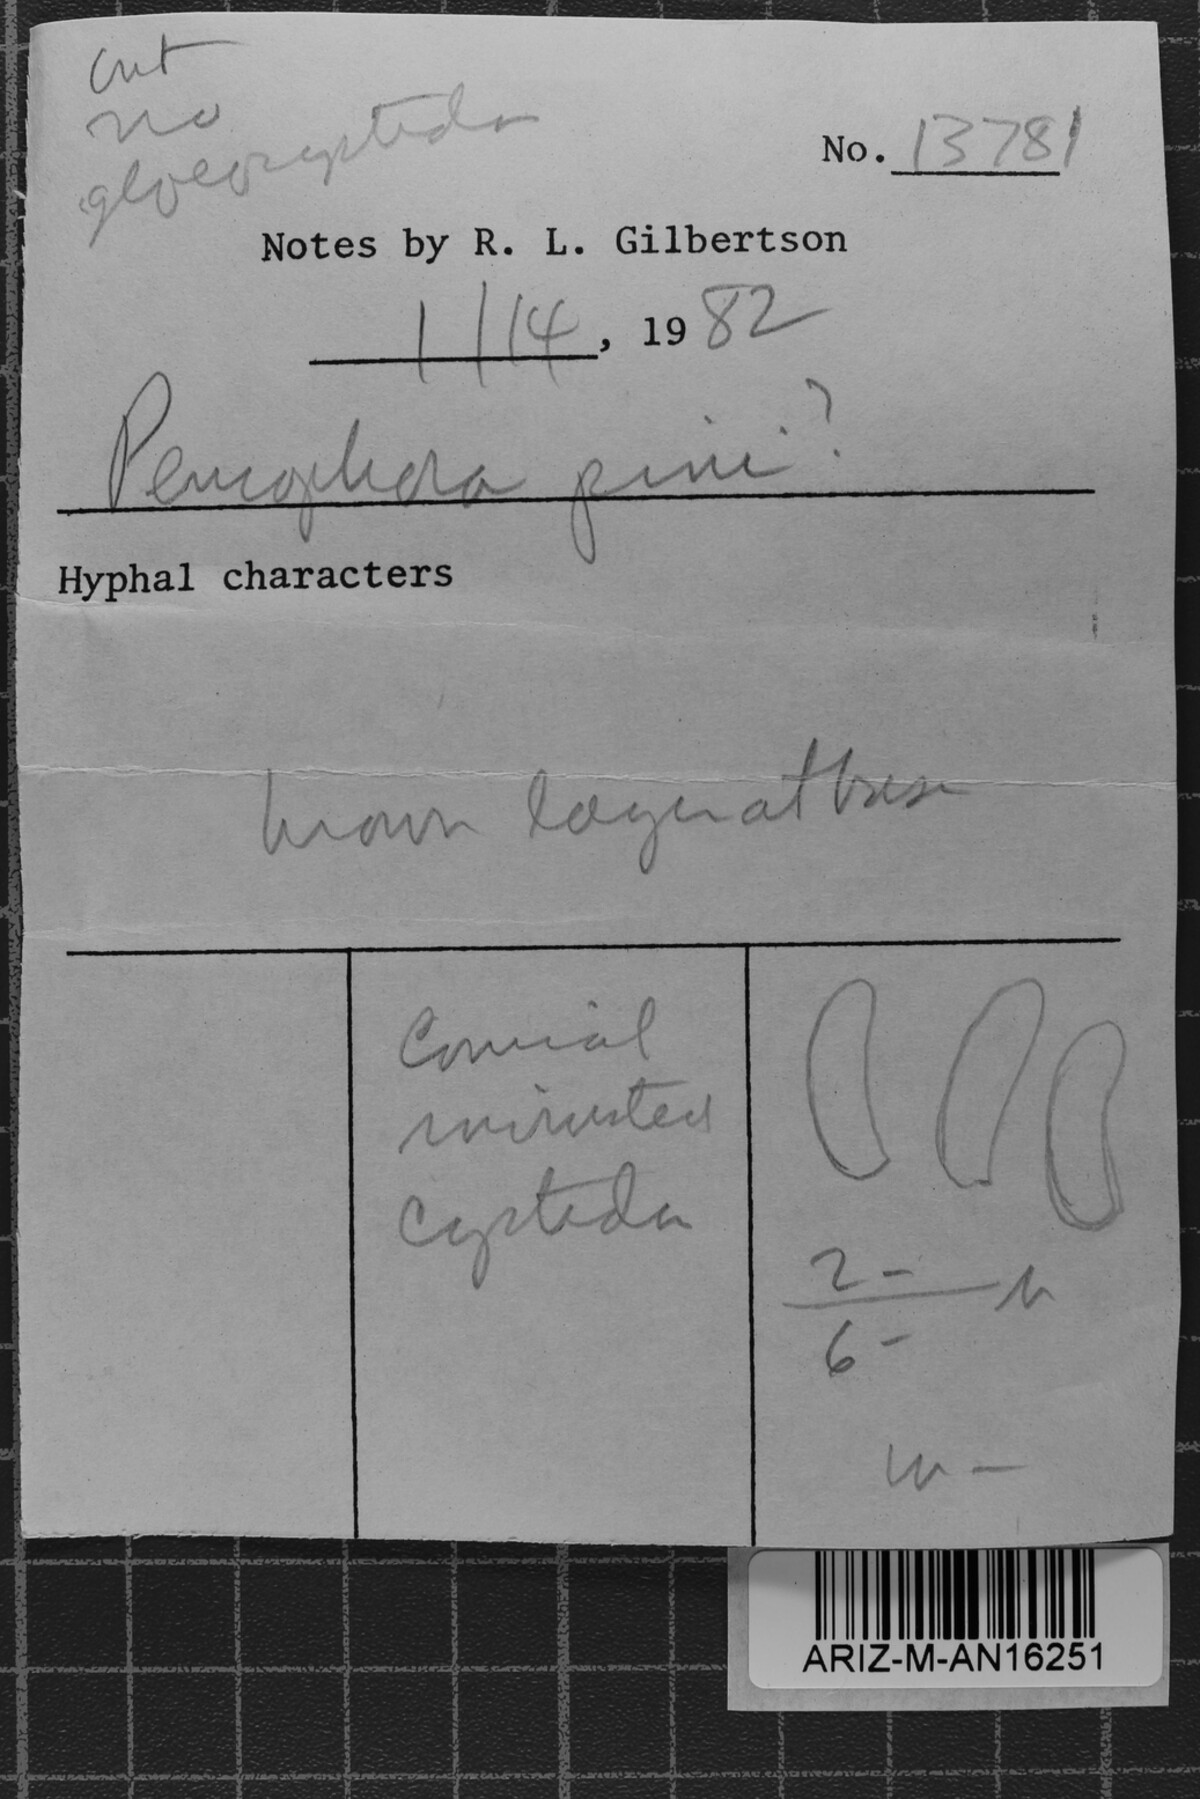 cut
no
gloeocystidia
No. 13781
Notes by R. L. Gilbertson
1/14, 1982
Peniophora pini?
Hyphal characters
brown layer at base
Conical
incrusted
cystidia
2 -
6 - µ
m -
ARIZ-M-AN16251